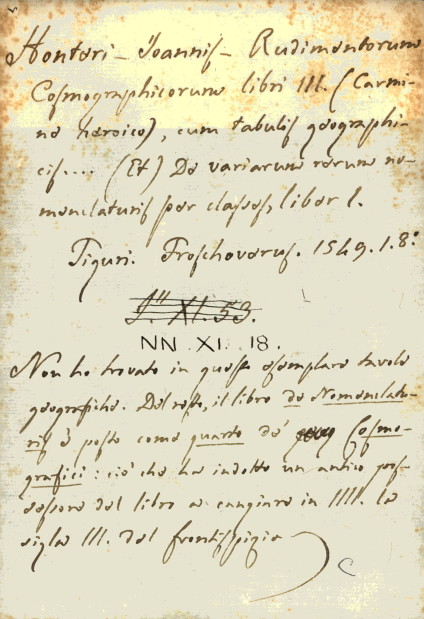 Honteri Joannis Rudimentorum
Cosmographicorum libri III. (Carmi-
ne heroico), cum tabulis geographi-
cis.... (Et) De variarum rerum no-
menclaturis per classes, liber I.
Tiguri. Froschoverus. 1549. 1. 8.°
J." XI. 53.
NN. XI. 18.
Non ho trovato in questo esemplare tavole
geografiche. Del resto, il libro de Nomenclatu-
ris è posto come quarto de' Cosmo-
grafici: ciò che ha indotto un antico pos-
sessore del libro a cangiare in IIII. la
sigla III. del frontispizio
C